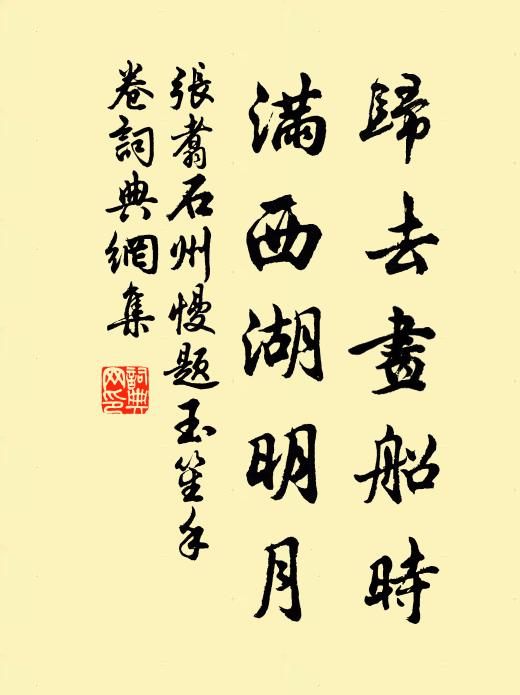 歸去畫船時
滿西湖明月
張翥石州慢題玉笙手
卷詞典網集
詞典
网印